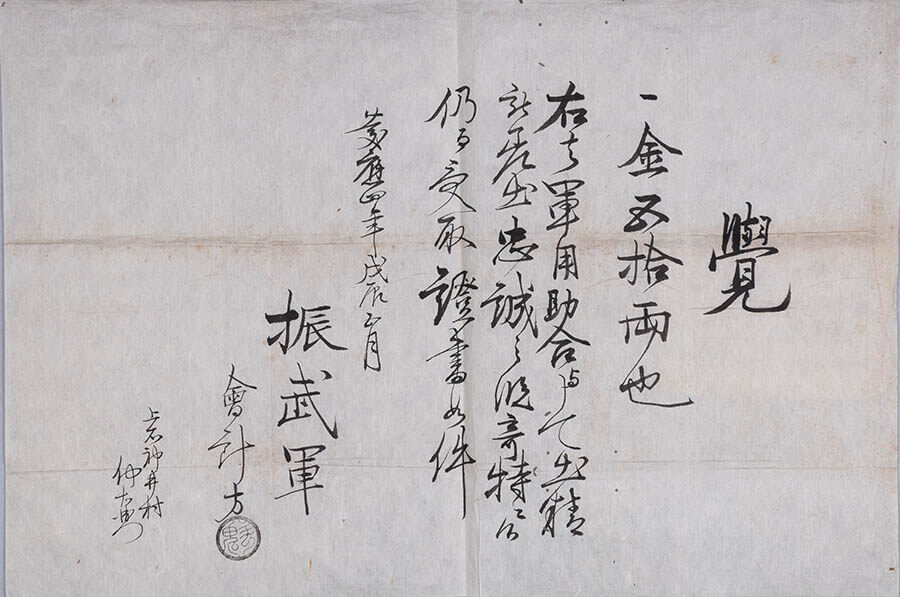 覺
一金五拾両也
右者軍用助合与して出精
致差出忠誠之段奇特ニ候
仍而受取證書如件
慶應四年戊辰五月
振武軍
會計方
上石神井村
仲右衛門